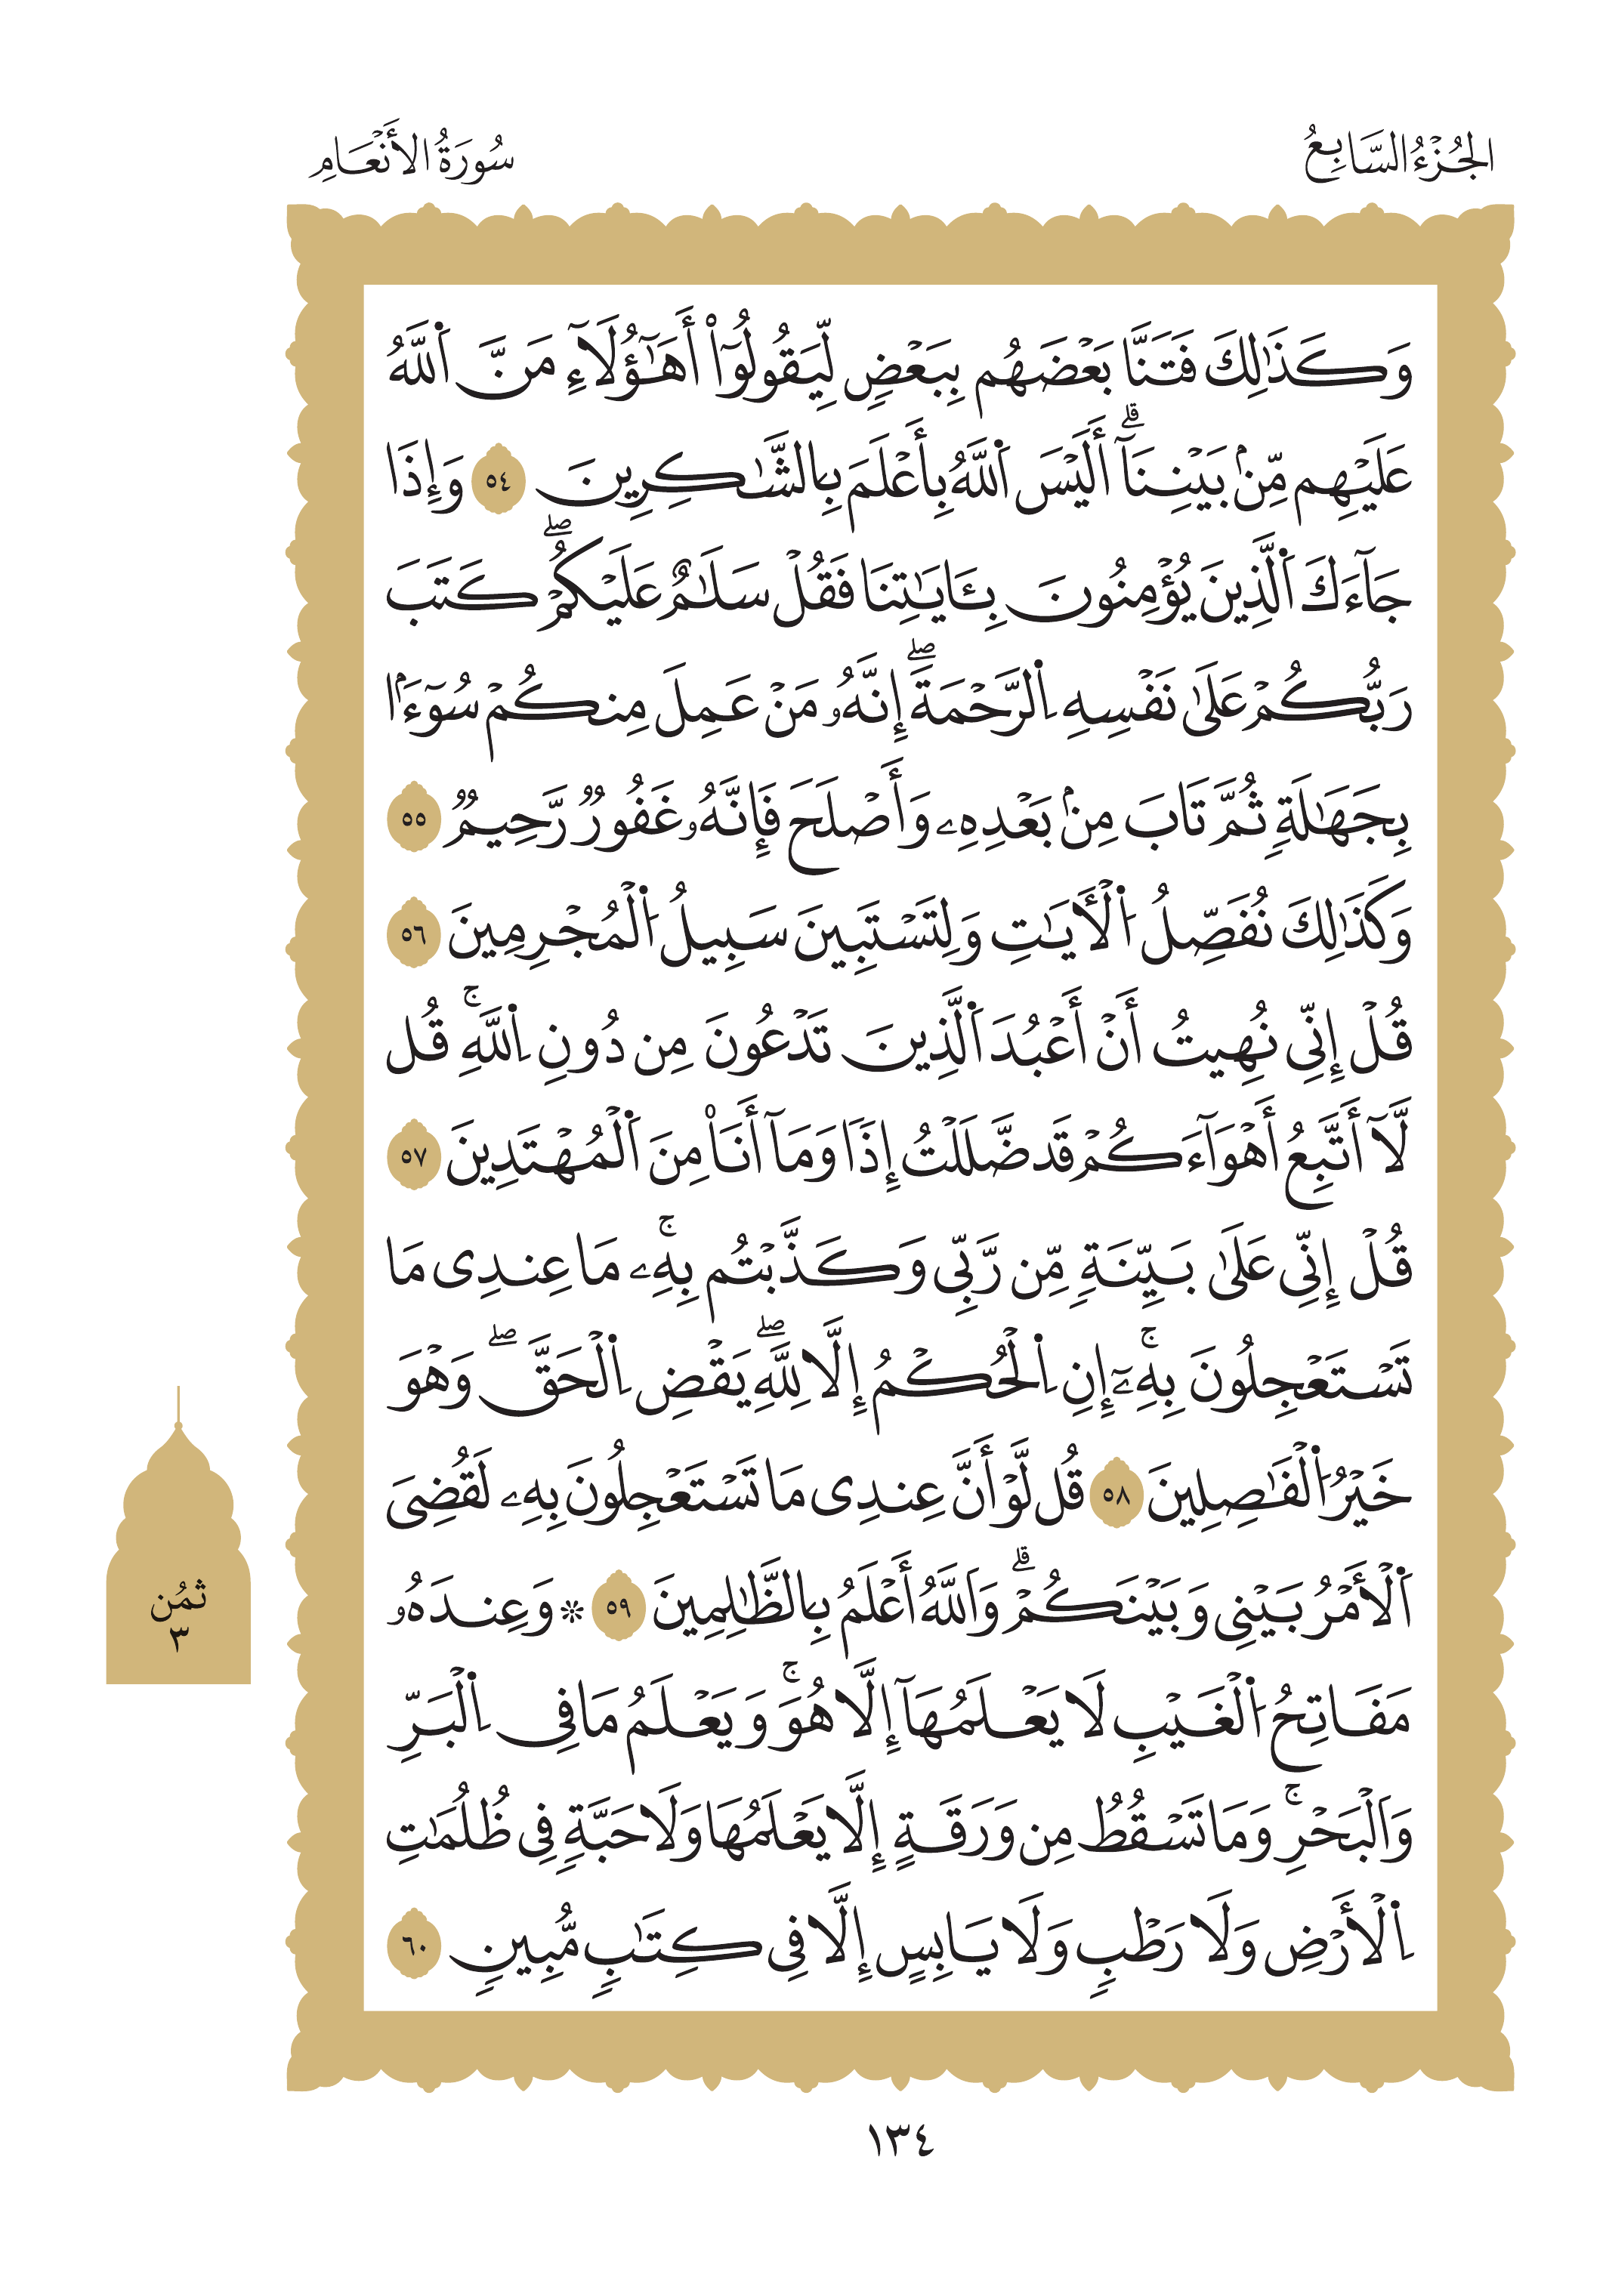 الجُزْءُ السَّابِعُ
سُورَةُ الأَنْعَامِ
وَكَذَٰلِكَ فَتَنَّا بَعْضَهُم بِبَعْضٖ لِّيَقُولُوٓاْ أَهَٰٓؤُلَآءِ مَنَّ اَ۬للَّهُ
عَلَيْهِم مِّنۢ بَيْنِنَآۗ أَلَيْسَ اَ۬للَّهُ بِأَعْلَمَ بِالشَّٰكِرِينَ ٥٤ وَإِذَا
جَآءَكَ اَ۬لَّذِينَ يُؤْمِنُونَ بِـَٔايَٰتِنَا فَقُلْ سَلَٰمٌ عَلَيْكُمْۖ كَتَبَ
رَبُّكُمْ عَلَىٰ نَفْسِهِ اِ۬لرَّحْمَةَۖ إِنَّهُۥ مَنْ عَمِلَ مِنكُمْ سُوٓءَۢا
بِجَهَٰلَةٖ ثُمَّ تَابَ مِنۢ بَعْدِهِۦ وَأَصْلَحَ فَإِنَّهُۥ غَفُورٞ رَّحِيمٞ ٥٥
وَكَذَٰلِكَ نُفَصِّلُ اُ۬لْأٓيَٰتِ وَلِتَسْتَبِينَ سَبِيلُ اُ۬لْمُجْرِمِينَ ٥٦
قُلْ إِنِّي نُهِيتُ أَنْ أَعْبُدَ اَ۬لَّذِينَ تَدْعُونَ مِن دُونِ اِ۬للَّهِۚ قُل
لَّآ أَتَّبِعُ أَهْوَآءَكُمْ قَد ضَّلَلْتُ إِذٗا وَمَآ أَنَا۠ مِنَ اَ۬لْمُهْتَدِينَ ٥٧
قُلْ إِنِّي عَلَىٰ بَيِّنَةٖ مِّن رَّبِّي وَكَذَّبْتُم بِهِۦۚ مَا عِندِى مَا
تَسْتَعْجِلُونَ بِهِۦٓۚ إِنِ اِ۬لْحُكْمُ إِلَّا لِلَّهِۖ يَقْضِ اِ۬لْحَقَّۖ وَهْوَ
خَيْرُ اُ۬لْفَٰصِلِينَ ٥٨ قُل لَّوْ أَنَّ عِندِى مَا تَسْتَعْجِلُونَ بِهِۦ لَقُضِىَ
اَ۬لْأَمْرُ بَيْنِي وَبَيْنَكُمْۗ وَاَللَّهُ أَعْلَمُ بِالظَّٰلِمِينَ ٥٩ ۞ وَعِندَهُۥ
مَفَاتِحُ اُ۬لْغَيْبِ لَا يَعْلَمُهَآ إِلَّا هُوَۚ وَيَعْلَمُ مَا فِى اِ۬لْبَرِّ
وَاَلْبَحْرِۚ وَمَا تَسْقُطُ مِن وَرَقَةٍ إِلَّا يَعْلَمُهَا وَلَا حَبَّةٖ فِى ظُلُمَٰتِ
اِ۬لْأَرْضِ وَلَا رَطْبٖ وَلَا يَابِسٍ إِلَّا فِى كِتَٰبٖ مُّبِينٖ ٦٠
ثمُن
٣
١٣٤